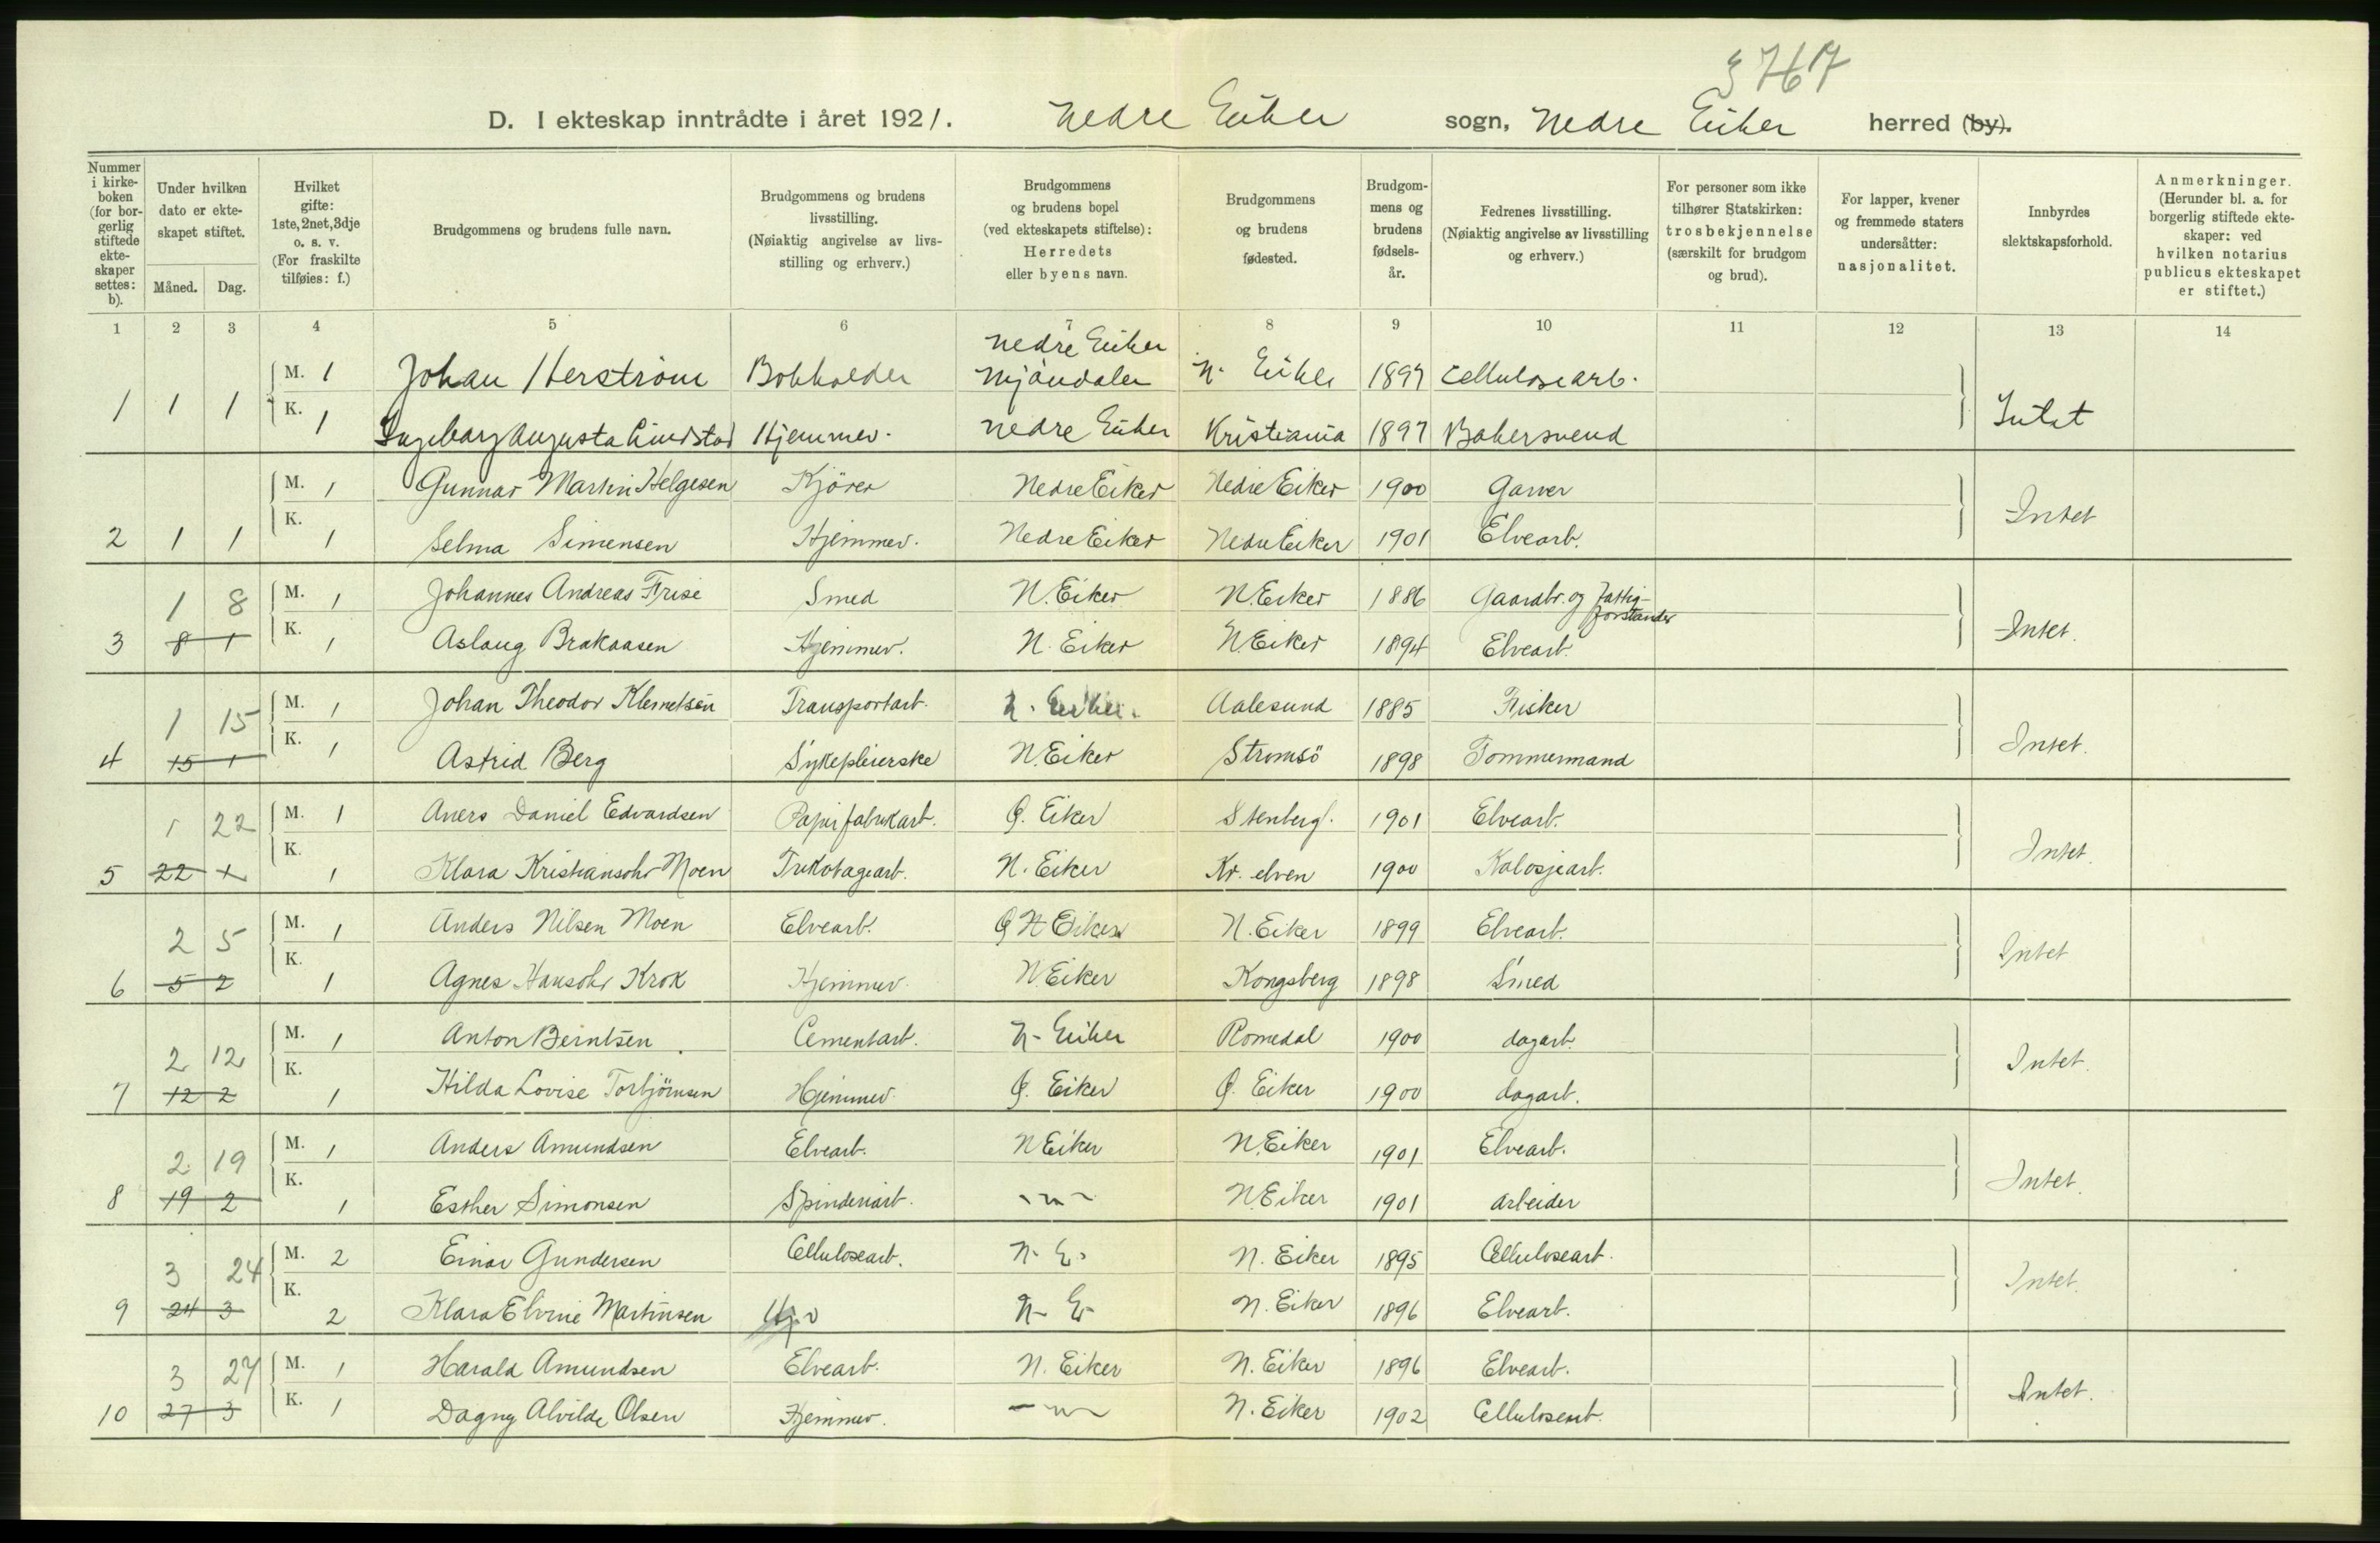 3767
D. I ekteskap inntrådte i året 1921. Nedre Eiker sogn, Nedre Eiker herred (by).
Nummer i kirke-boken (for bor-gerlig stiftede ekte-skaper settes: b).
Under hvilken dato er ekte-skapet stiftet.
Måned. Dag.
Hvilket gifte: 1ste, 2net, 3dje o. s. v. (For fraskilte tilføies: f.)
Brudgommens og brudens fulle navn.
Brudgommens og brudens livsstilling. (Nøiaktig angivelse av livs-stilling og erhverv.)
Brudgommens og brudens bopel (ved ekteskapets stiftelse): Herredets eller byens navn.
Brudgommens og brudens fødested.
Brudgom-mens og brudens fødsels-år.
Fedrenes livsstilling. (Nøiaktig angivelse av livsstilling og erhverv.)
For personer som ikke tilhører Statskirken: trosbekjennelse (særskilt for brudgom og brud).
For lapper, kvener og fremmede staters undersåtter: nasjonalitet.
Innbyrdes slektskapsforhold.
Anmerkninger. (Herunder bl. a. for borgerlig stiftede ekte-skaper: ved hvilken notarius publicus ekteskapet er stiftet.)
1 2 3 4 5 6 7 8 9 10 11 12 13 14
Nedre Eiker
M. 1 Johan Herström Bokholder Mjöndalen N. Eiker 1897 Cellulosearb.
1 1 1 K. 1 Ingeborg Augusta Lindstad Hjemmev. Nedre Eiker Kristiania 1897 Bakersvend Intet
M. 1 Gunnar Martin Helgesen Kjörer Nedre Eiker Nedre Eiker 1900 Garver
2 1 1 K. 1 Selma Simensen Hjemmev. Nedre Eiker Nedre Eiker 1901 Elvearb. Intet
1 8 M. 1 Johannes Andreas Frise Smed N. Eiker N. Eiker 1886 Gaardbr. og Fattig-forstander
3 8 1 K. 1 Aslaug Brakaasen Hjemmev. N. Eiker N Eiker 1894 Elvearb. Intet.
1 15 M. 1 Johan Theodor Klemetsen Transportarb. N. Eiker. Aalesund 1885 Fisker
4 15 1 K. 1 Astrid Berg Sykepleierske N. Eiker Strömsö 1898 Tømmermand Intet.
1 22 M. 1 Aners Daniel Edvardsen Papirfabrikarb. Ø. Eiker Stenberg. 1901 Elvearb.
5 22 1 K. 1 Klara Kristiansdtr Moen Trikotagearb. N. Eiker Kr. elven 1900 Kalosjearb. Intet.
2 5 M. 1 Anders Nilsen Moen Elvearb. Ø N Eiker N. Eiker 1899 Elvearb.
6 5 2 K. 1 Agnes Hansdtr Krok Hjemmev. N. Eiker Kongsberg 1898 Smed Intet
2 12 M. 1 Anton Berntsen Cementarb. N. Eiker Romedal 1900 dagarb.
7 12 2 K. 1 Hilda Lovise Torbjörnsen Hjemmev. Ø. Eiker Ø. Eiker 1900 dagarb. Intet.
2 19 M. 1 Anders Amundsen Elvearb. N Eiker N. Eiker 1901 Elvearb.
8 19 2 K. 1 Esther Simonsen Spinderiarb. -"- N. Eiker 1901 arbeider Intet.
3 24 M. 2 Einar Gundersen Cellulosearb. N. E. N. Eiker 1895 Cellulosearb.
9 24 3 K. 2 Klara Elvine Martinsen Hj.v N. E. N. Eiker 1896 Elvearb. Intet.
3 27 M. 1 Harald Amundsen Elvearb. N. Eiker N. Eiker 1896 Elvearb.
10 27 3 K. 1 Dagny Alvilde Olsen Hjemmev. -"- N. Eiker 1902 Cellulosearb. Intet.